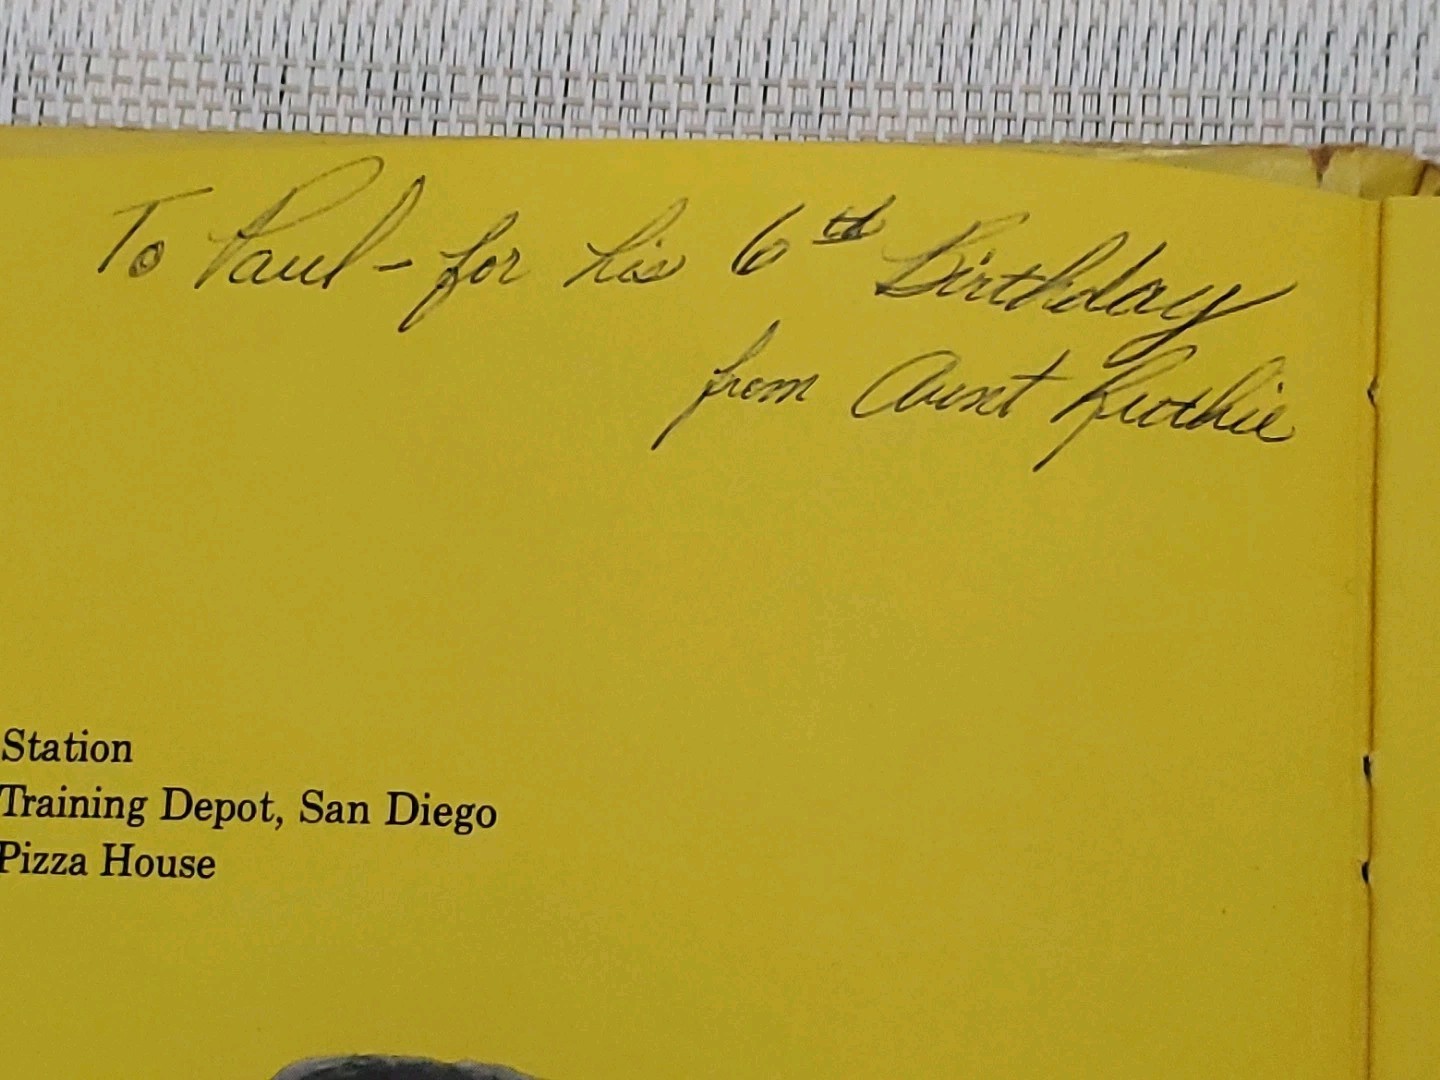 To Paul - for his 6th Birthday
from Aunt Ruthie
Station
Training Depot, San Diego
Pizza House